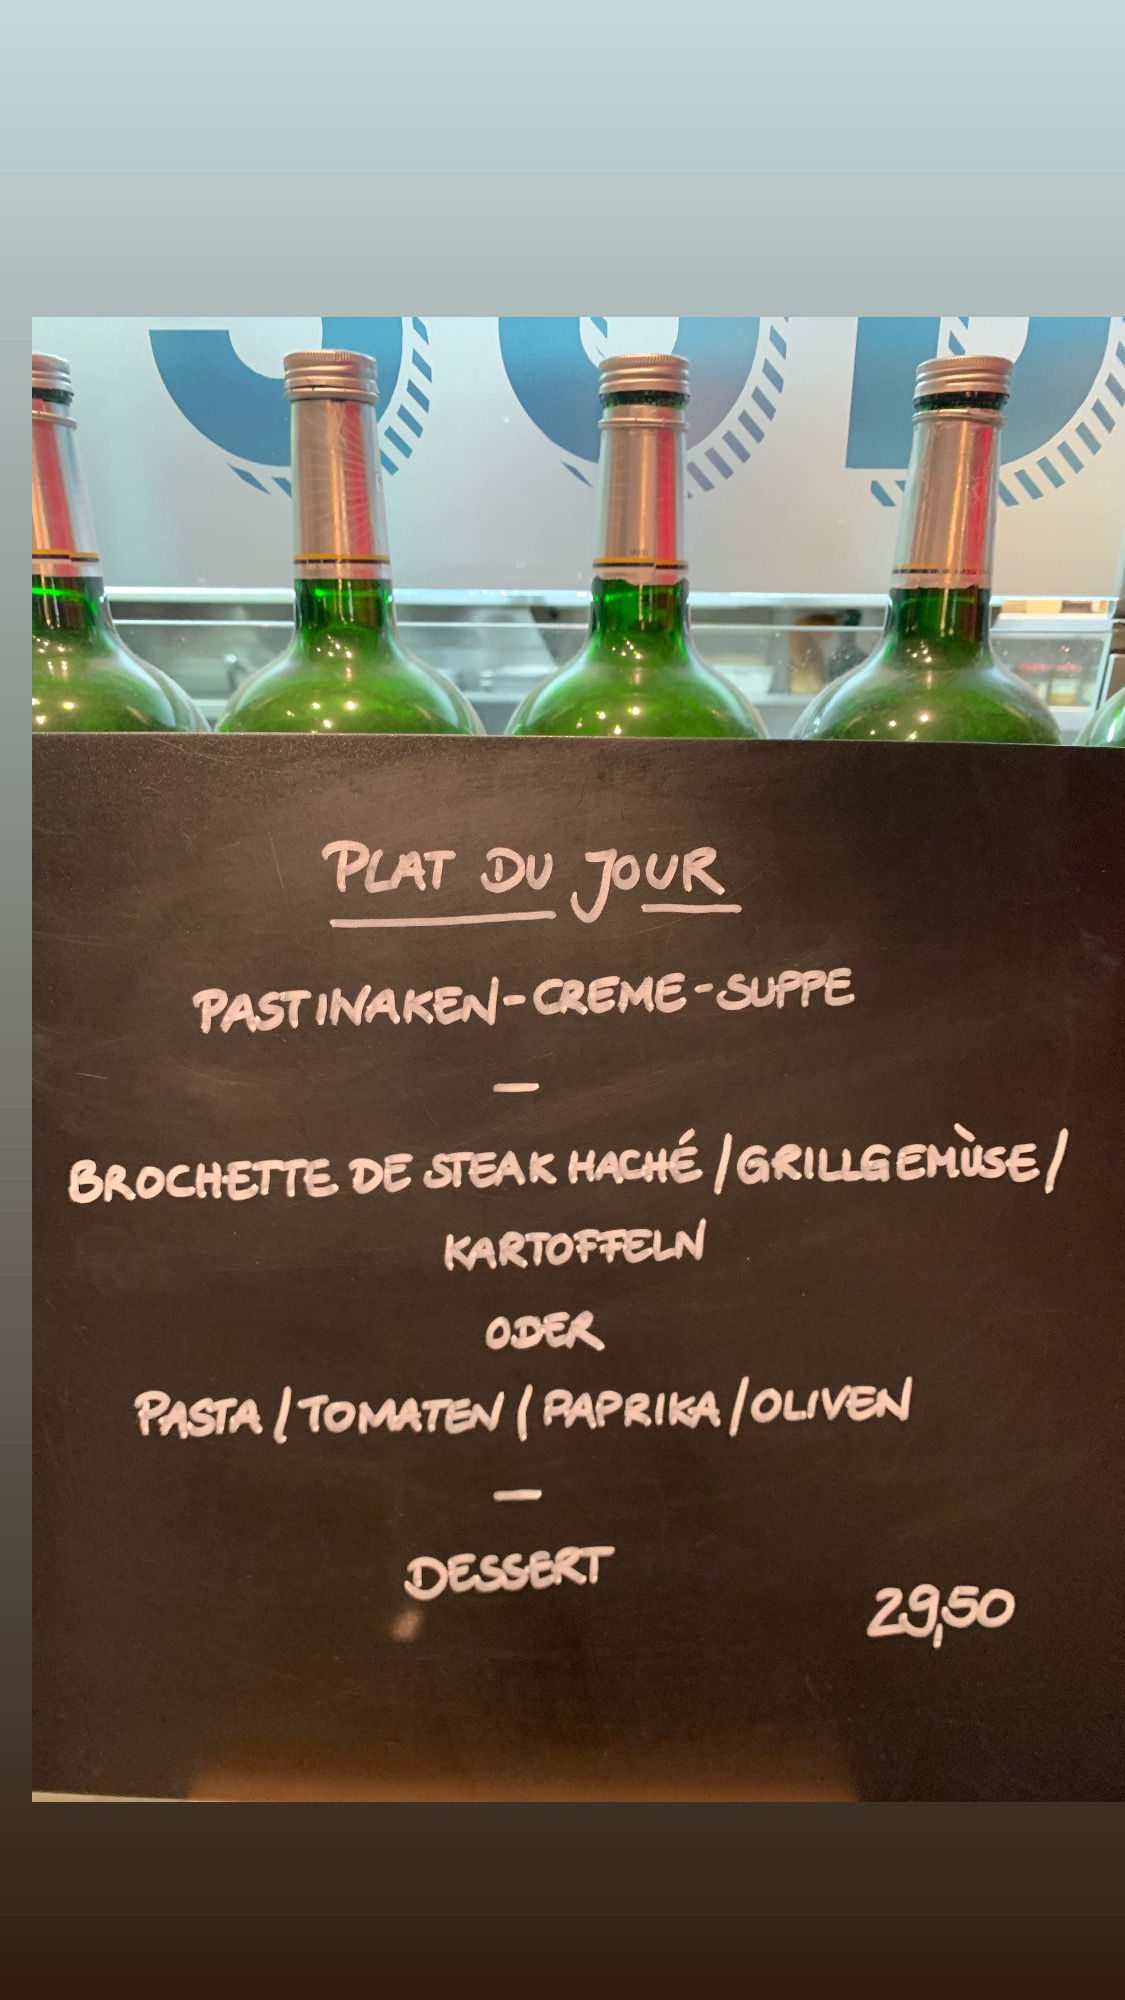 PLAT DU JOUR
PASTINAKEN-CREME-SUPPE
—
BROCHETTE DE STEAK HACHÉ / GRILLGEMÙSE /
KARTOFFELN
ODER
PASTA / TOMATEN / PAPRIKA / OLIVEN
—
DESSERT
29,50